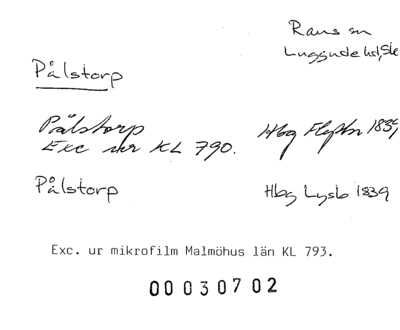 Raus sn
Luggude hd, Sk
Pålstorp
Pålstorp Hbg 1839
Exc ur KL 790.
Pålstorp Hbg Lysb 1839
Exc. ur mikrofilm Malmöhus län KL 793.
00 030702